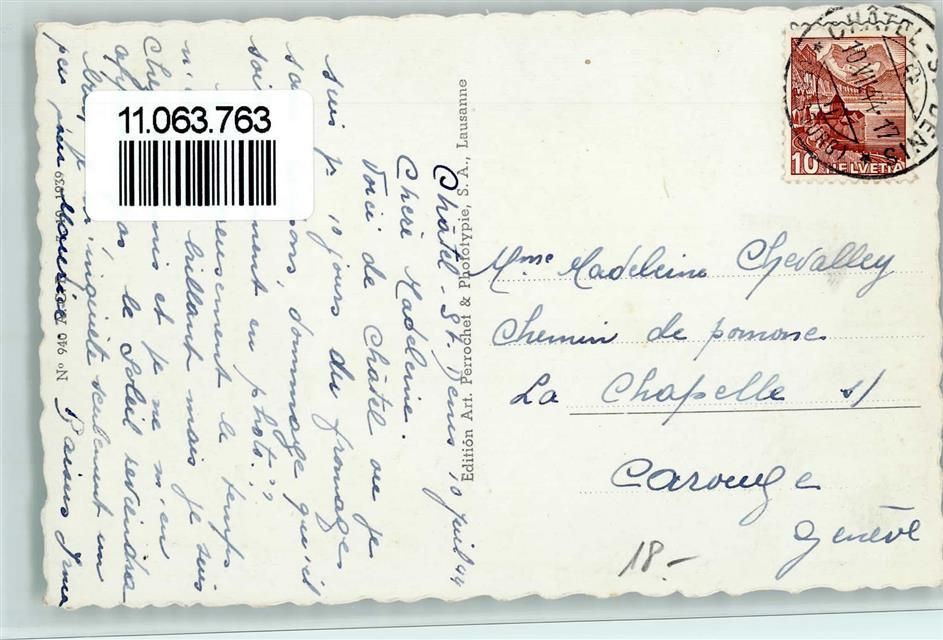 11.063.763
CHÂTEL-ST-DENIS
10.VII.44-17
10 HELVETIA
Châtel-St. Denis 10 Juil 44
Chère Madeleine.
Voici de Châtel où je
suis pr 10 jours du fromage
sons, dommage qu'il
soi ment en photo !?
eusement le temps
n' brillant mais je suis
Chez mis et je ne m'en
as le Soleil reviendra
m'inquiète seulement un
peu pour Maurice
Baisers
Nº 940
Edition Art. Perrochet & Phototypie, S. A., Lausanne
Mme Madeleine Chevalley
Chemin de pomone
La Chapelle s/
Carouge
Genève
18.-